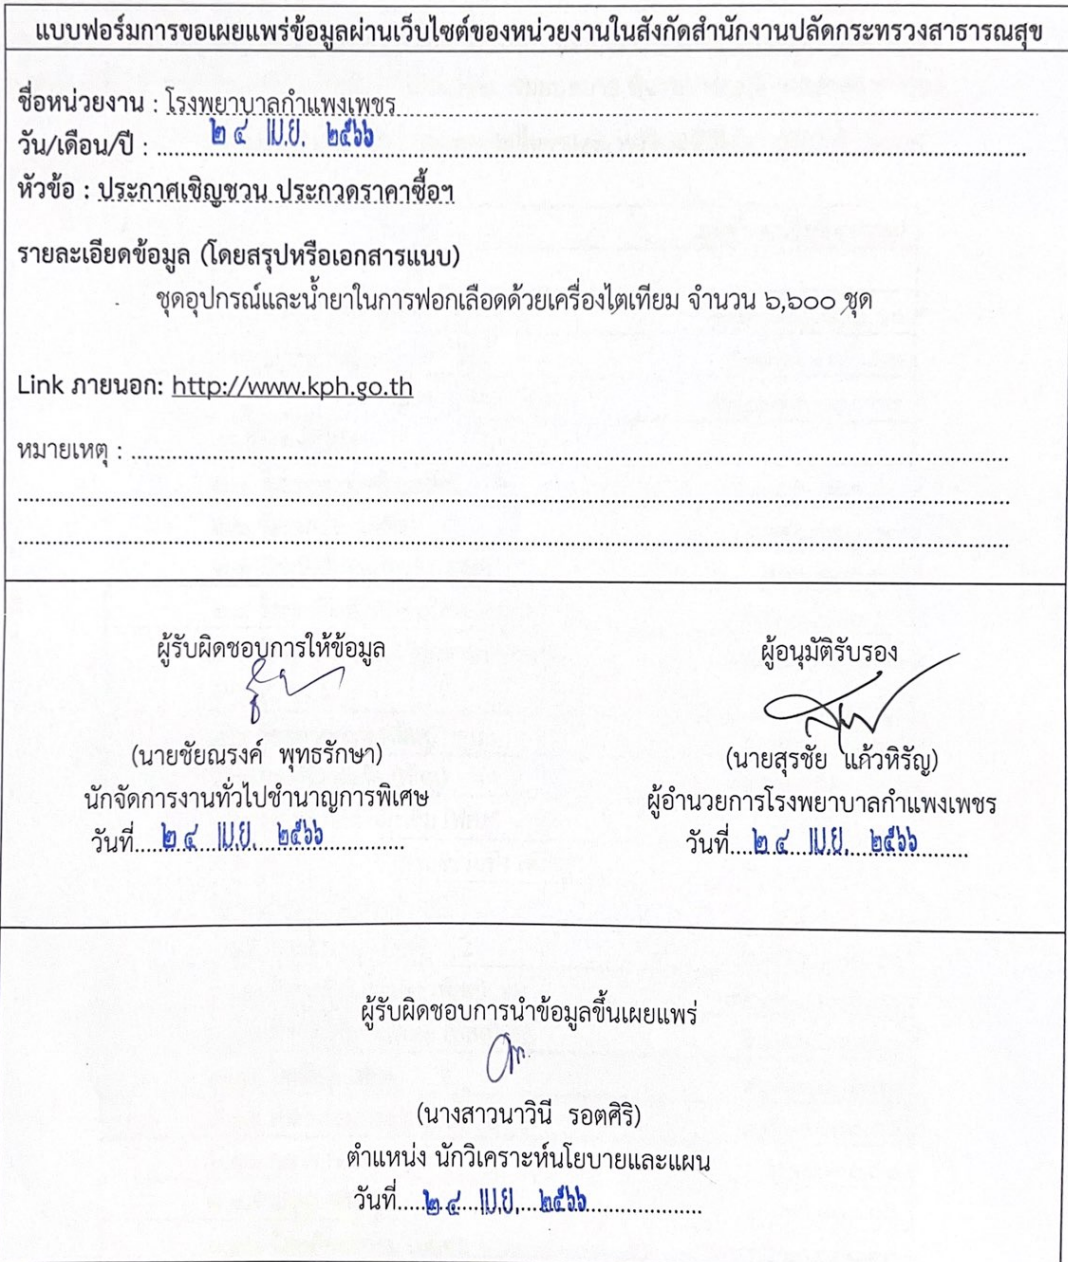 แบบฟอร์มการขอเผยแพร่ข้อมูลผ่านเว็บไซต์ของหน่วยงานในสังกัดสำนักงานปลัดกระทรวงสาธารณสุข
ชื่อหน่วยงาน : โรงพยาบาลกำแพงเพชร
วัน/เดือน/ปี : ๒๔ เม.ย. ๒๕๖๖
หัวข้อ : ประกาศเชิญชวน ประกวดราคาซื้อฯ
รายละเอียดข้อมูล (โดยสรุปหรือเอกสารแนบ)
ชุดอุปกรณ์และน้ำยาในการฟอกเลือดด้วยเครื่องไตเทียม จำนวน ๖,๖๐๐ ชุด
Link ภายนอก: http://www.kph.go.th
หมายเหตุ :
ผู้รับผิดชอบการให้ข้อมูล
ผู้อนุมัติรับรอง
(นายชัยณรงค์ พุทธรักษา)
(นายสุรชัย แก้วหิรัญ)
นักจัดการงานทั่วไปชำนาญการพิเศษ
ผู้อำนวยการโรงพยาบาลกำแพงเพชร
วันที่ ๒๔ เม.ย. ๒๕๖๖
วันที่ ๒๔ เม.ย. ๒๕๖๖
ผู้รับผิดชอบการนำข้อมูลขึ้นเผยแพร่
(นางสาวนาวินี รอตศิริ)
ตำแหน่ง นักวิเคราะห์นโยบายและแผน
วันที่ ๒๔ เม.ย. ๒๕๖๖